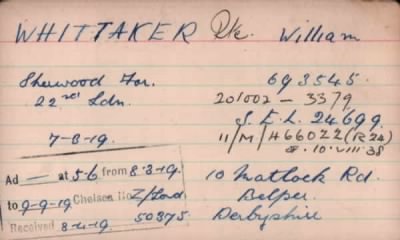 WHITTAKER Pte. William
Sherwood For. 693545.
22nd Ldn. 201002 - 3379
S.E.L. 24699
7-3-19. 11/M/H66022 (R24)
8.10.VIII.38
Ad — at 5/6 from 8.3.19.
to 9-9-19 Chelsea No Z/Lord.
Received 8-4-19 50375
10 Matlock Rd.
Belper.
Derbyshire